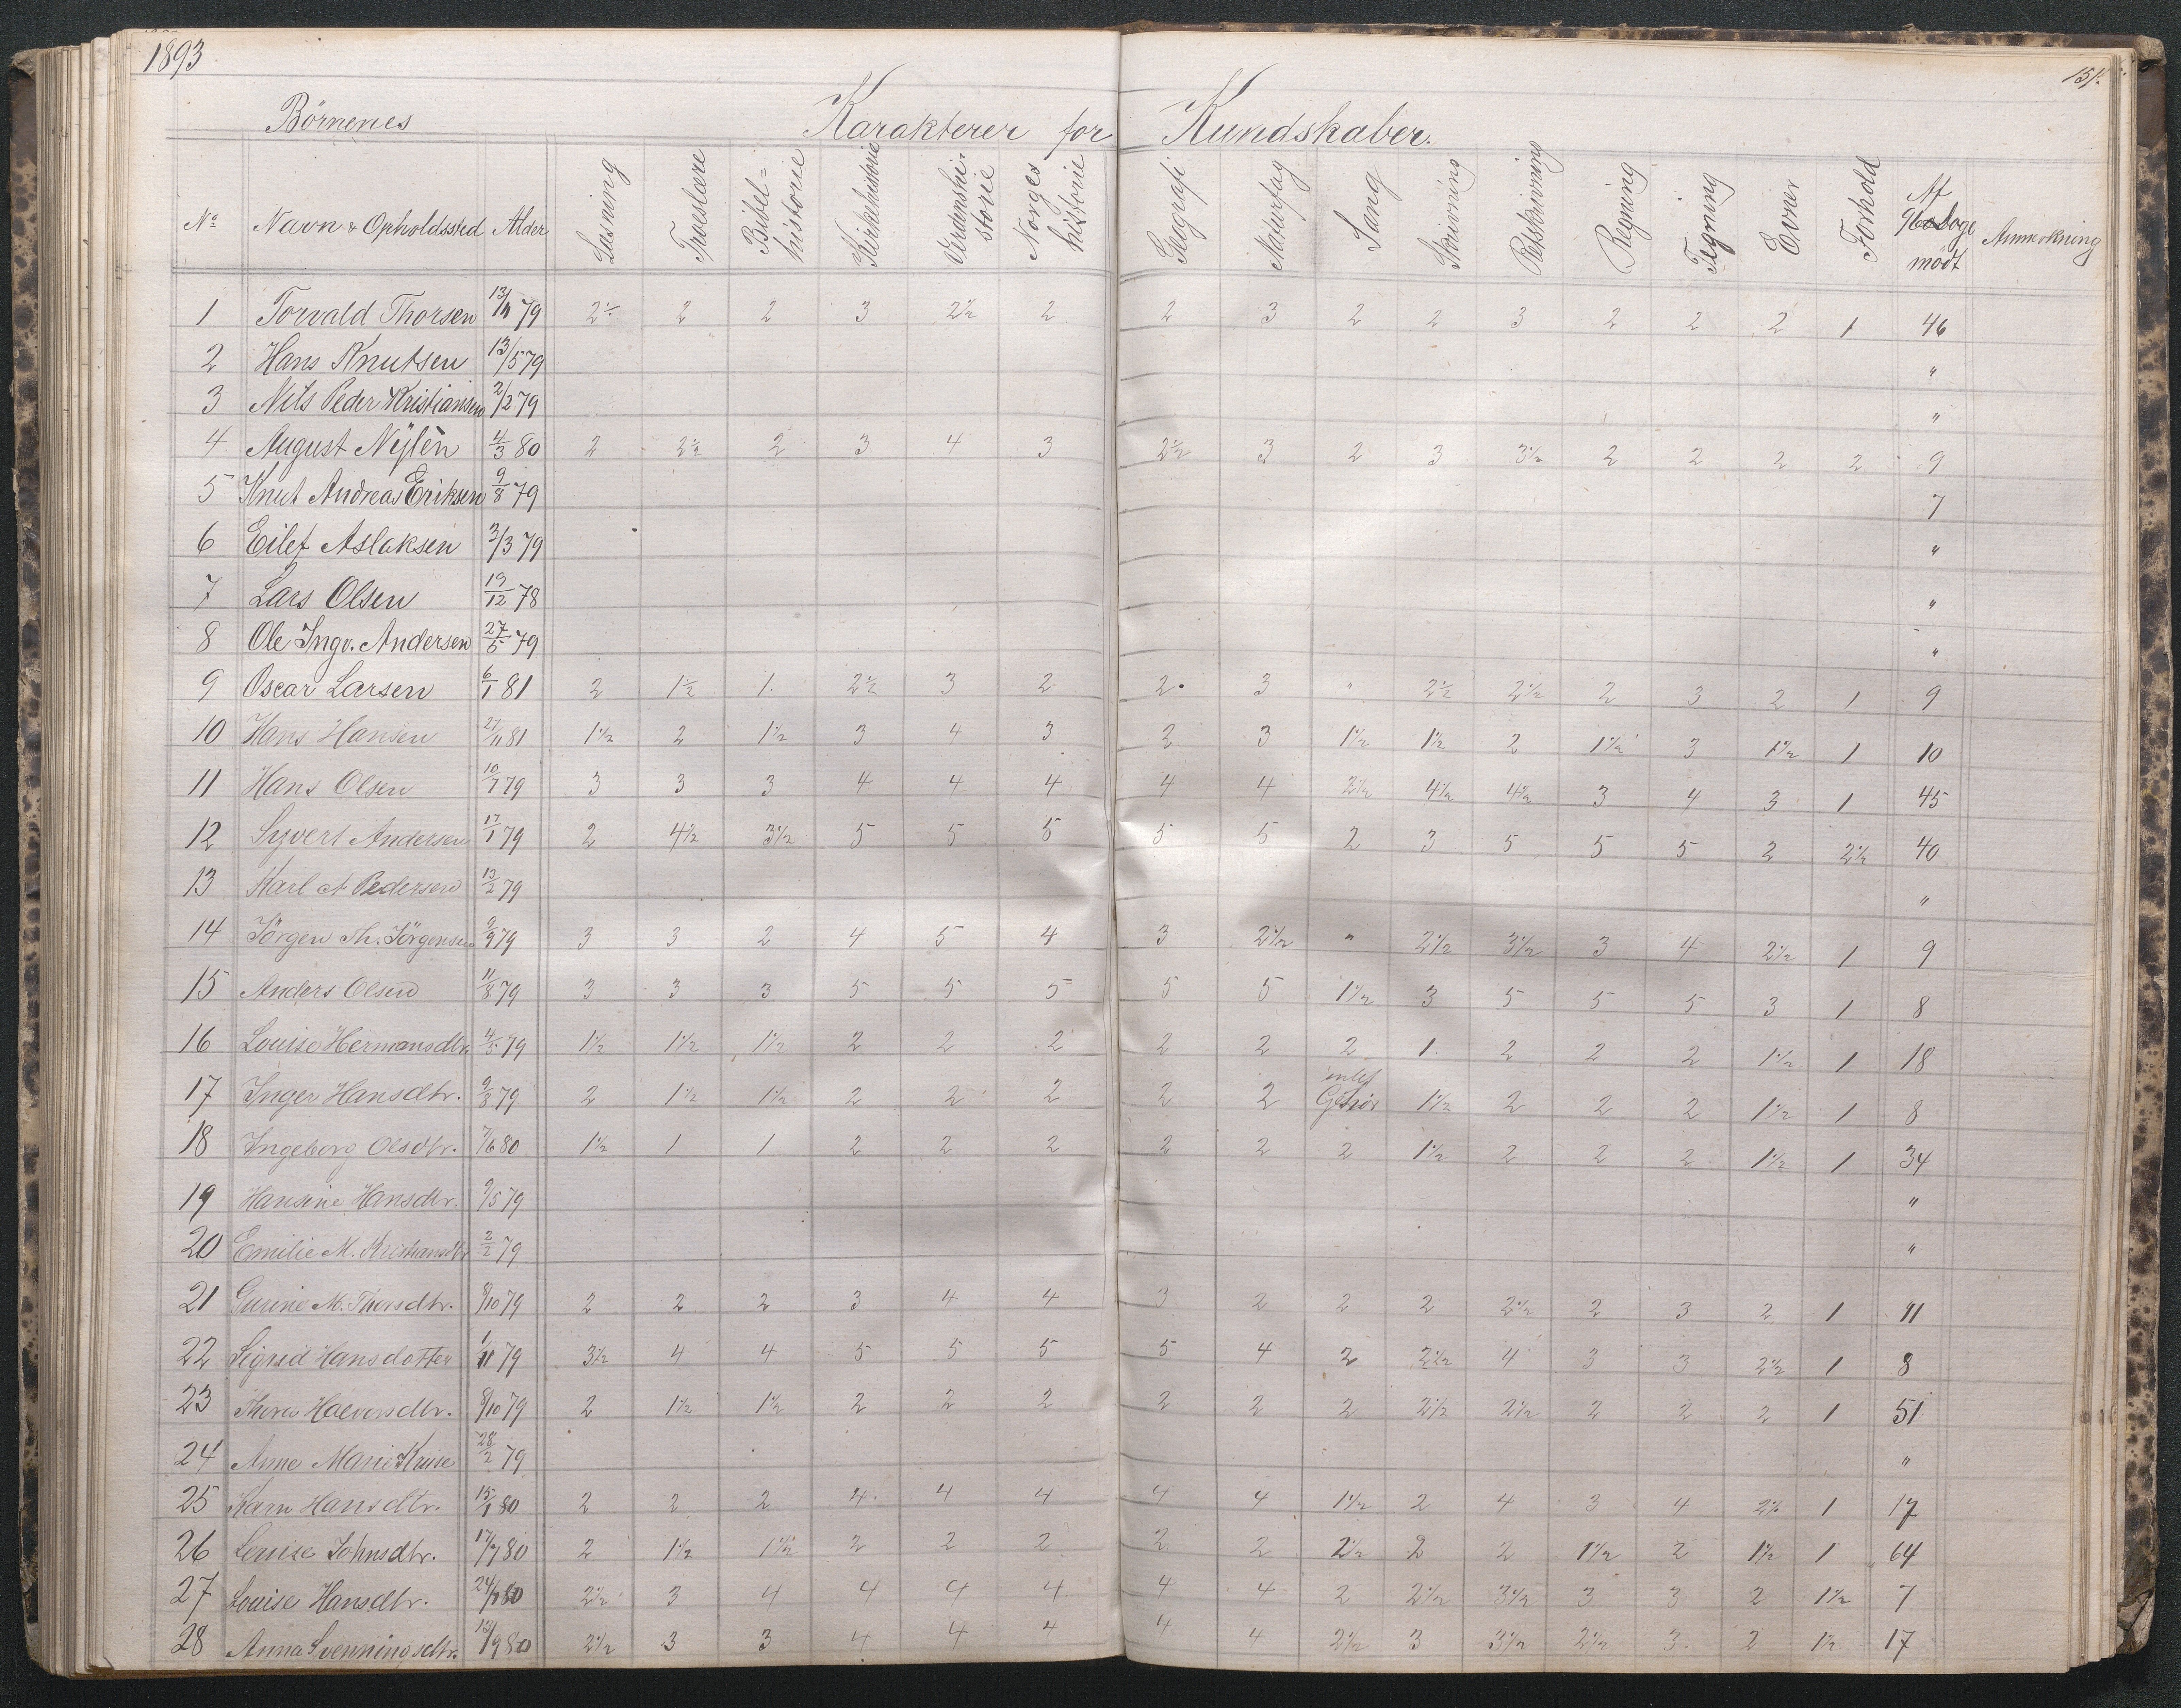 1893
151.
Börnenes Karakterer for Kundskaber.
No Navn & Opholdssted Alder Læsning Troeslære Bibel=historie Kirkehistorie Verdenshistorie Norges historie Geografi Naturfag Sang Skrivning Retskrivning Regning Tegning Evner Forhold Af Dage mödt Anmerkning
1 Torvald Thorsen 79 2½ 2 2 3 2½ 2 2 3 2 2 3 2 2 2 1 46
2 Hans Knutsen 13/5 79 "
3 Nils Peder Kristiansen 2/2 79 "
4 August Nylèn 4/3 80 2 2½ 2 3 4 3 2½ 3 2 3 3½ 2 2 2 2 9
5 Knut Andreas Eriksen 9/8 79 7
6 Eilef Aslaksen 3/3 79 "
7 Lars Olsen 19/12 78 "
8 Ole Ingv. Andersen 27/5 79 "
9 Oscar Larsen 6/1 81 2 1½ 1. 2½ 3 2 2. 3 " 2½ 2½ 2 3 2 1 9
10 Hans Hansen 27/11 81 1½ 2 1½ 3 4 3 2 3 1½ 1½ 2 1½ 3 1½ 1 10
11 Hans Olsen 10/7 79 3 3 3 4 4 4 4 4 2½ 4½ 4½ 3 4 3 1 45
12 Syvert Andersen 17/1 79 2 4½ 3½ 5 5 5 5 5 2 3 5 5 5 2 2½ 40
13 Karl A Pedersen 13/2 79 "
14 Jörgen Th. Jörgensen 9/9 79 3 3 2 4 5 4 3 2½ " 2½ 3½ 3 4 2½ 1 9
15 Anders Olsen 11/8 79 3 3 3 5 5 5 5 5 1½ 3 5 5 5 3 1 8
16 Louise Hermansdtr. 4/5 79 1½ 1½ 1½ 2 2 2 2 2 2 1. 2 2 2 1½ 1 18
17 Inger Hansdtr. 9/8 79 2 1½ 1½ 2 2 2 2 2 intet Gehör 1½ 2 2 2 1½ 1 8
18 Ingeborg Olsdtr. 7/6 80 1½ 1 1 2 2 2 2 2 2 1½ 2 2 2 1½ 1 34
19 Hansine Hansdtr. 9/5 79 "
20 Emilie M. Kristiansdtr 2/2 79 "
21 Gurine M. Thorsdtr. 8/10 79 2 2 2 3 4 4 3 2 2 2 2½ 2 3 2 1 11
22 Sigrid Hansdotter 1/11 79 3½ 4 4 5 5 5 5 4 2 2½ 4 3 3 2½ 1 8
23 Halvorsdtr. 8/10 79 2 1½ 1½ 2 2 2 2 2 2 2½ 2½ 2 2 2 1 51
24 Anne Marie Kruse 28/2 79 "
25 Karn Hansdtr. 15/1 80 2 2 2 4. 4 4 4 4 1½ 2 4 3 4 2½ 1 17
26 Louise Johnsdtr. 17/7 80 2 1½ 1½ 2 2 2 2 2 2½ 2 2 1½ 2 1½ 1 64
27 Louise Hansdtr. 80 2½ 3 4 4 4 4 4 4 2 2½ 3½ 3 3 2 1½ 7
28 Anna Svenningsdtr. 13/9 80 2½ 3 3 4 4 4 4 4 2½ 3 3½ 2½ 3. 2 1½ 17